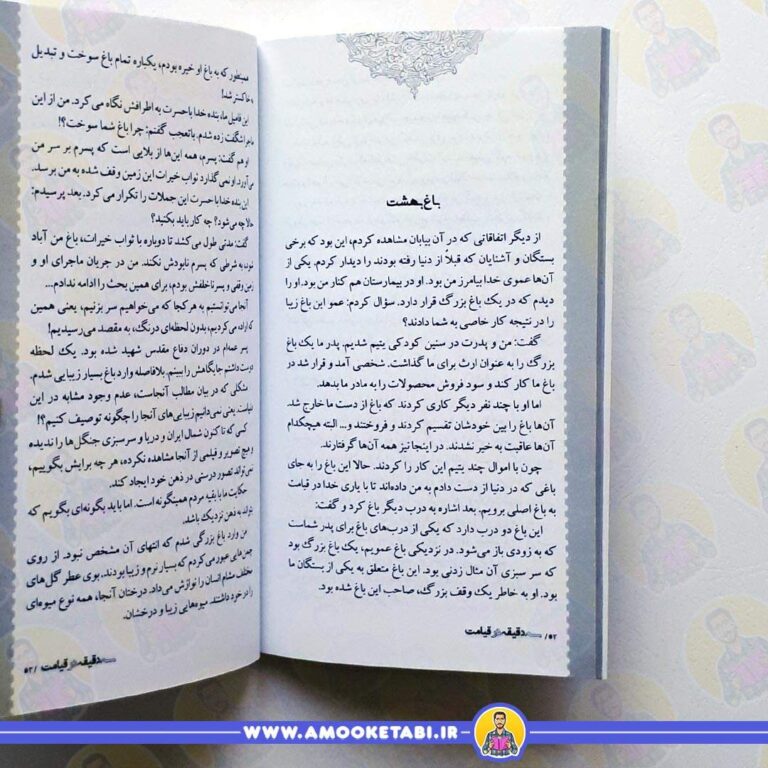 باغ بهشت
از دیگر اتفاقاتی که در آن بیابان مشاهده کردم، این بود که برخی
بستگان و آشنایان که قبلاً از دنیا رفته بودند را دیدار کردم. یکی از
آن‌ها عموی خدابیامرز من بود. او در بیمارستان هم کنار من بود. او را
دیدم که در یک باغ بزرگ قرار دارد. سؤال کردم: عمو این باغ زیبا
را در نتیجه کار خاصی به شما دادند؟
گفت: من و پدرت در سنین کودکی یتیم شدیم. پدر ما یک باغ
بزرگ را به عنوان ارث برای ما گذاشت. شخصی آمد و قرار شد در
باغ ما کار کند و سود فروش محصولات را به مادر ما بدهد.
اما او با چند نفر دیگر کاری کردند که باغ از دست ما خارج شد.
آن‌ها باغ را بین خودشان تقسیم کردند و فروختند و... البته هیچکدام
آن‌ها عاقبت به خیر نشدند. در اینجا نیز همه آن‌ها گرفتارند.
چون با اموال چند یتیم این کار را کردند. حالا این باغ را به جای
باغی که در دنیا از دست دادم به من داده‌اند تا با یاری خدا در قیامت
به باغ اصلی برویم. بعد اشاره به درب دیگر باغ کرد و گفت:
این باغ دو درب دارد که یکی از درب‌های باغ برای پدر شماست
که به زودی باز می‌شود. در نزدیکی باغ عمویم، یک باغ بزرگ بود
که سر سبزی آن مثال زدنی بود. این باغ متعلق به یکی از بستگان ما
بود. او به خاطر یک وقف بزرگ، صاحب این باغ شده بود.
۵۲/ سه دقیقه در قیامت
همینطور که به باغ او خیره بودم، یکباره تمام باغ سوخت و تبدیل
به خاکستر شد!
این فامیل ما، بنده خدا با حسرت به اطرافش نگاه می‌کرد. من از این
ماجرا شگفت زده شدم. باتعجب گفتم: چرا باغ شما سوخت؟!
او هم گفت: پسرم، همه این‌ها از بلایی است که پسرم بر سر من
می‌آورد. او نمی‌گذارد ثواب خیرات این زمین وقف شده به من برسد.
این بنده خدا با حسرت این جملات را تکرار می‌کرد. بعد پرسیدم:
حالا چه می‌شود؟ چه کار باید بکنید؟
گفت: مدتی طول می‌کشد تا دوباره با ثواب خیرات، باغ من آباد
شود، به شرطی که پسرم نابودش نکند. من در جریان ماجرای او و
زمین وقفی و پسر ناخلفش بودم، برای همین بحث را ادامه ندادم...
آنجا می‌توانستیم به هر کجا که می‌خواهیم سر بزنیم، یعنی همین
که اراده می‌کردیم، بدون لحظه‌ای درنگ، به مقصد می‌رسیدیم!
پسر عمه‌ام در دوران دفاع مقدس شهید شده بود. یک لحظه
دوست داشتم جایگاهش را ببینم. بلافاصله وارد باغ بسیار زیبایی شدم.
مشکلی که در بیان مطالب آنجاست، عدم وجود مشابه در این
دنیاست. یعنی نمی‌دانیم زیبایی‌های آنجا را چگونه توصیف کنیم؟!
کسی که تا کنون شمال ایران و دریا و سرسبزی جنگل‌ها را ندیده
و هیچ تصویر و فیلمی از آنجا مشاهده نکرده، هر چه برایش بگوییم،
نمی‌تواند تصور درستی در ذهن خود ایجاد کند.
حکایت ما با بقیه مردم همینگونه است. اما باید بگونه‌ای بگویم که
بتواند به ذهن نزدیک باشد.
من وارد باغ بزرگی شدم که انتهای آن مشخص نبود. از روی
چمن‌هایی عبور می‌کردم که بسیار نرم و زیبا بودند. بوی عطر گل‌های
مختلف مشام انسان را نوازش می‌داد. درختان آنجا، همه نوع میوه‌ای
را در خود داشتند. میوه‌هایی زیبا و درخشان.
سه دقیقه در قیامت /۵۳
WWW.AMOOKETABI.IR